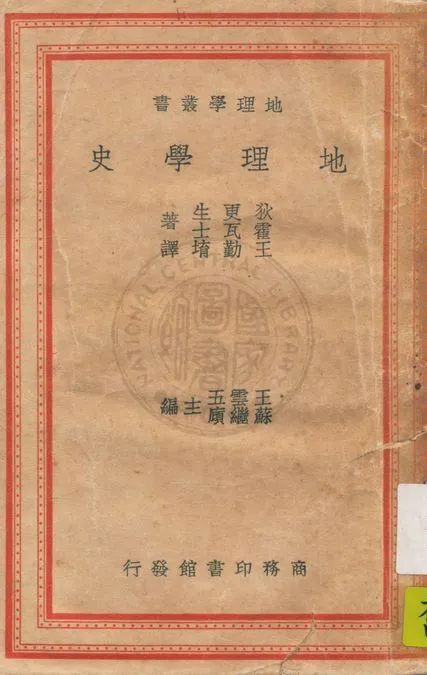 地理學叢書
地理學史
狄更生
霍瓦士著
王勤堉譯
王雲五
蘇繼廎
主編
商務印書館發行
NATIONAL CENTRAL LIBRARY
國家圖書館